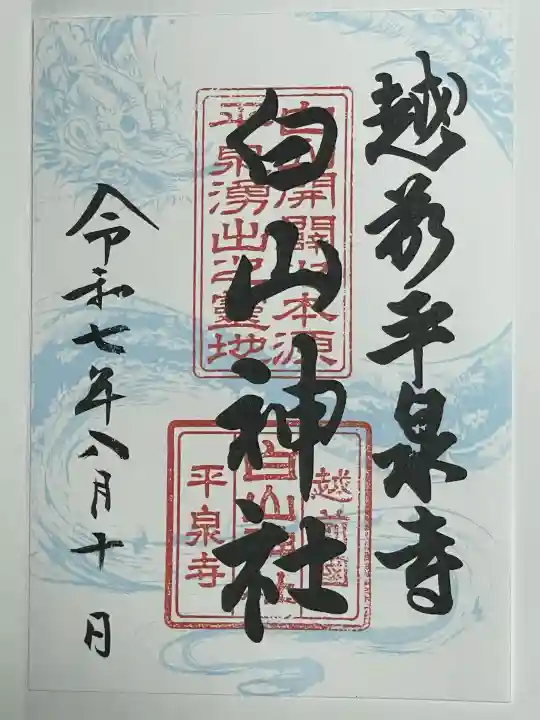 越前平泉寺
白山神社
令和七年八月十日
白山開闢之本源
平泉湧出之霊地
越前國
白山神社
平泉寺